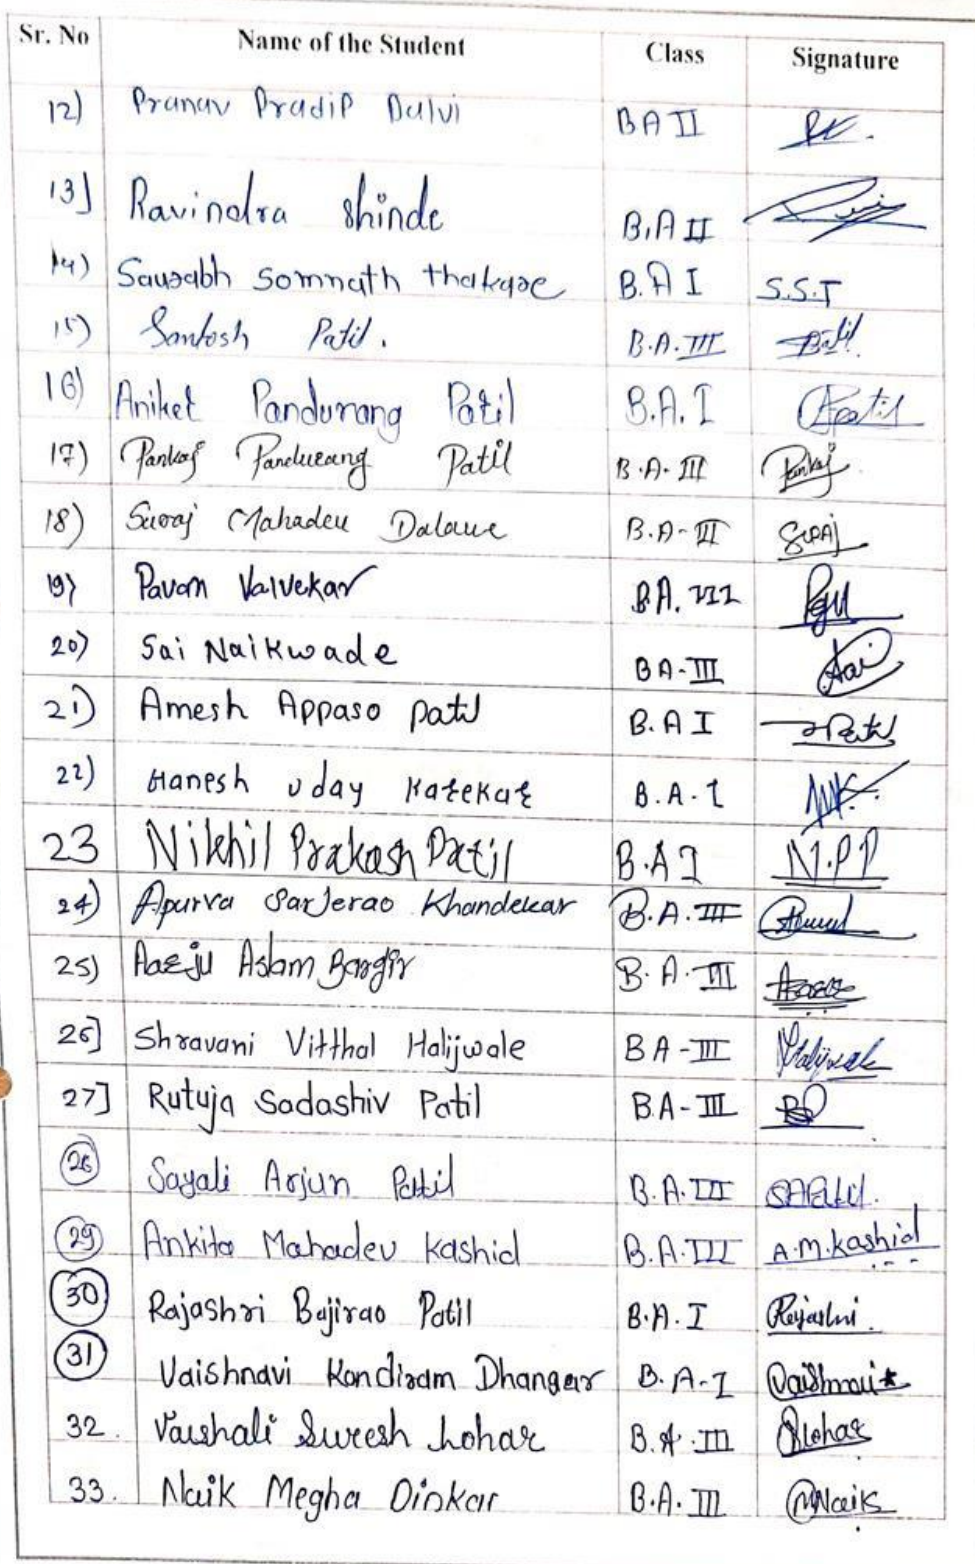 Sr. No Name of the Student Class Signature
12) Pranav Pradip Dalvi BA II
13] Ravindra Shinde B.A II
14) Saurabh Somnath thakare B.A I S.S.T
15) Santosh Patil. B.A. III Patil
16) Aniket Pandurang Patil B.A. I APatil
17) Pankaj Pandurang Patil B.A. III Pankaj
18) Suraj Mahadev Dalave B.A - III SURAJ
19) Pavan Valvekar B.A. III
20) Sai Naikwade BA-III Sai
21) Amesh Appaso patil B.A I Patil
22) Hanesh uday Katekar B.A.I
23 Nikhil Prakash Patil B.A I N.P.P
24) Apurva Sarjerao Khandekar B.A. III
25) Aarju Aslam Bargir B.A. III
26] Shravani Vitthal Halijwale BA-III Halijwale
27] Rutuja Sadashiv Patil B.A-III
28 Sayali Arjun Patil B.A. III SAPatil.
29 Ankita Mahadev Kashid B.A. III A.M.Kashid
30 Rajashri Bajirao Patil B.A. I Rajashri.
31 Vaishnavi Kondiram Dhangar B.A-I Vaishnavi
32. Vaishali Suresh Lohar B.A. III Lohar
33. Naik Megha Dinkar B.A. III MNaik